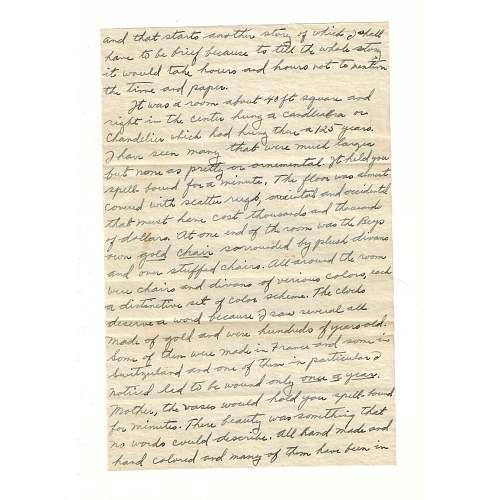 and that starts another story of which I shall
have to be brief because to tell the whole story
it would take hours and hours not to mention
the time and paper.
It was a room about 40 ft square and
right in the center hung a candleabra or
Chandelier which had hung there a 120 years.
I have seen many that were much larger
but none as pretty or ornemental. It held you
spell bound for a minute. The floor was almost
covered with scatter rugs, oriental and occidental
that must have cost thousands and thousands
of dollars. At one end of the room was the Beys
own gold chair sorrounded by plush divans
and over stuffed chairs. All around the room
were chairs and divans of verious colors, each
a distinctive set of color scheme. The clocks
deserve a word because I saw several all
made of gold and were hundreds of years old.
Some of them were made in France and some in
Switzerland and one of them in particular I
noticed had to be wound only once a year.
Mother, the vases would hold you spell-bound
for minutes. There beauty was something that
no words could describe. All hand made and
hand colored and many of them have been in